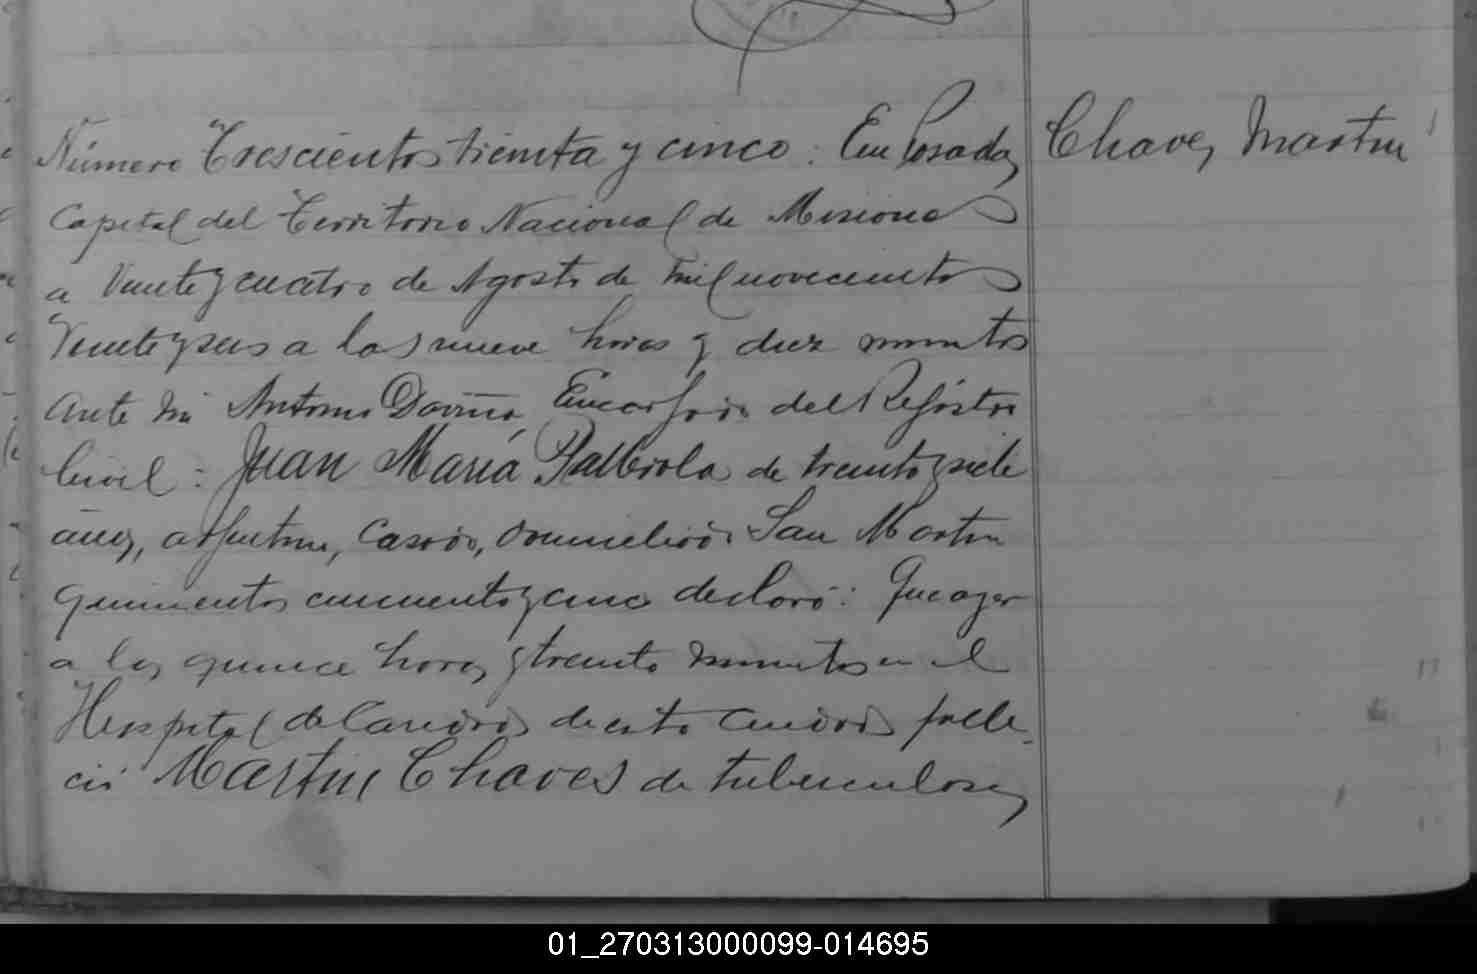 Número Trescientos treinta y cinco: En Posadas
Chaves, Martin
Capital del Territorio Nacional de Misiones
a Veinte y cuatro de Agosto de mil novecientos
Veinte y seis a las nueve horas y diez minutos
Ante mi Antonio Daviña, Encargado del Registro
Civil: Juan María de treinta y siete
años, argentino, casado, domiciliado San Martin
quinientos cincuenta y cinco declaró: Que ayer
a las quince horas y treinta minutos en el
Hospital de Caridad de esta ciudad falle-
ció Martin Chaves de tuberculosis,
01_270313000099-014695